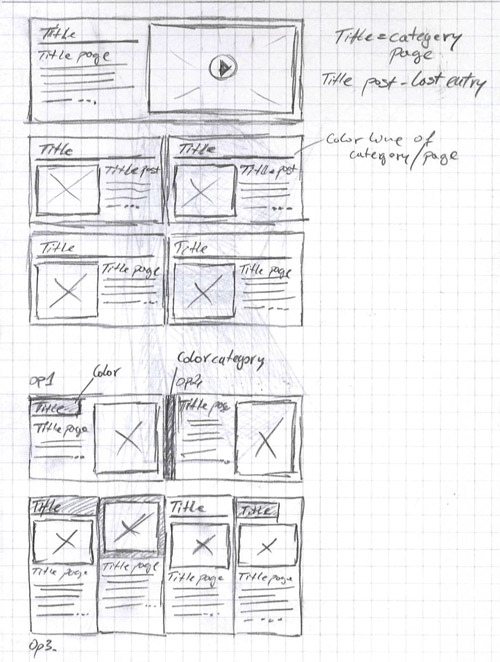 Title
Title page
Title = category
page
Title post - Last entry
Title
Title post
Title
Title post
Color line of
category/page
Title
Title page
Title
Title page
Op1
Color
Color category
Op2
Title
Title page
Title page
Title
Title page
Title page
Title
Title page
Title
Title page
Op3.